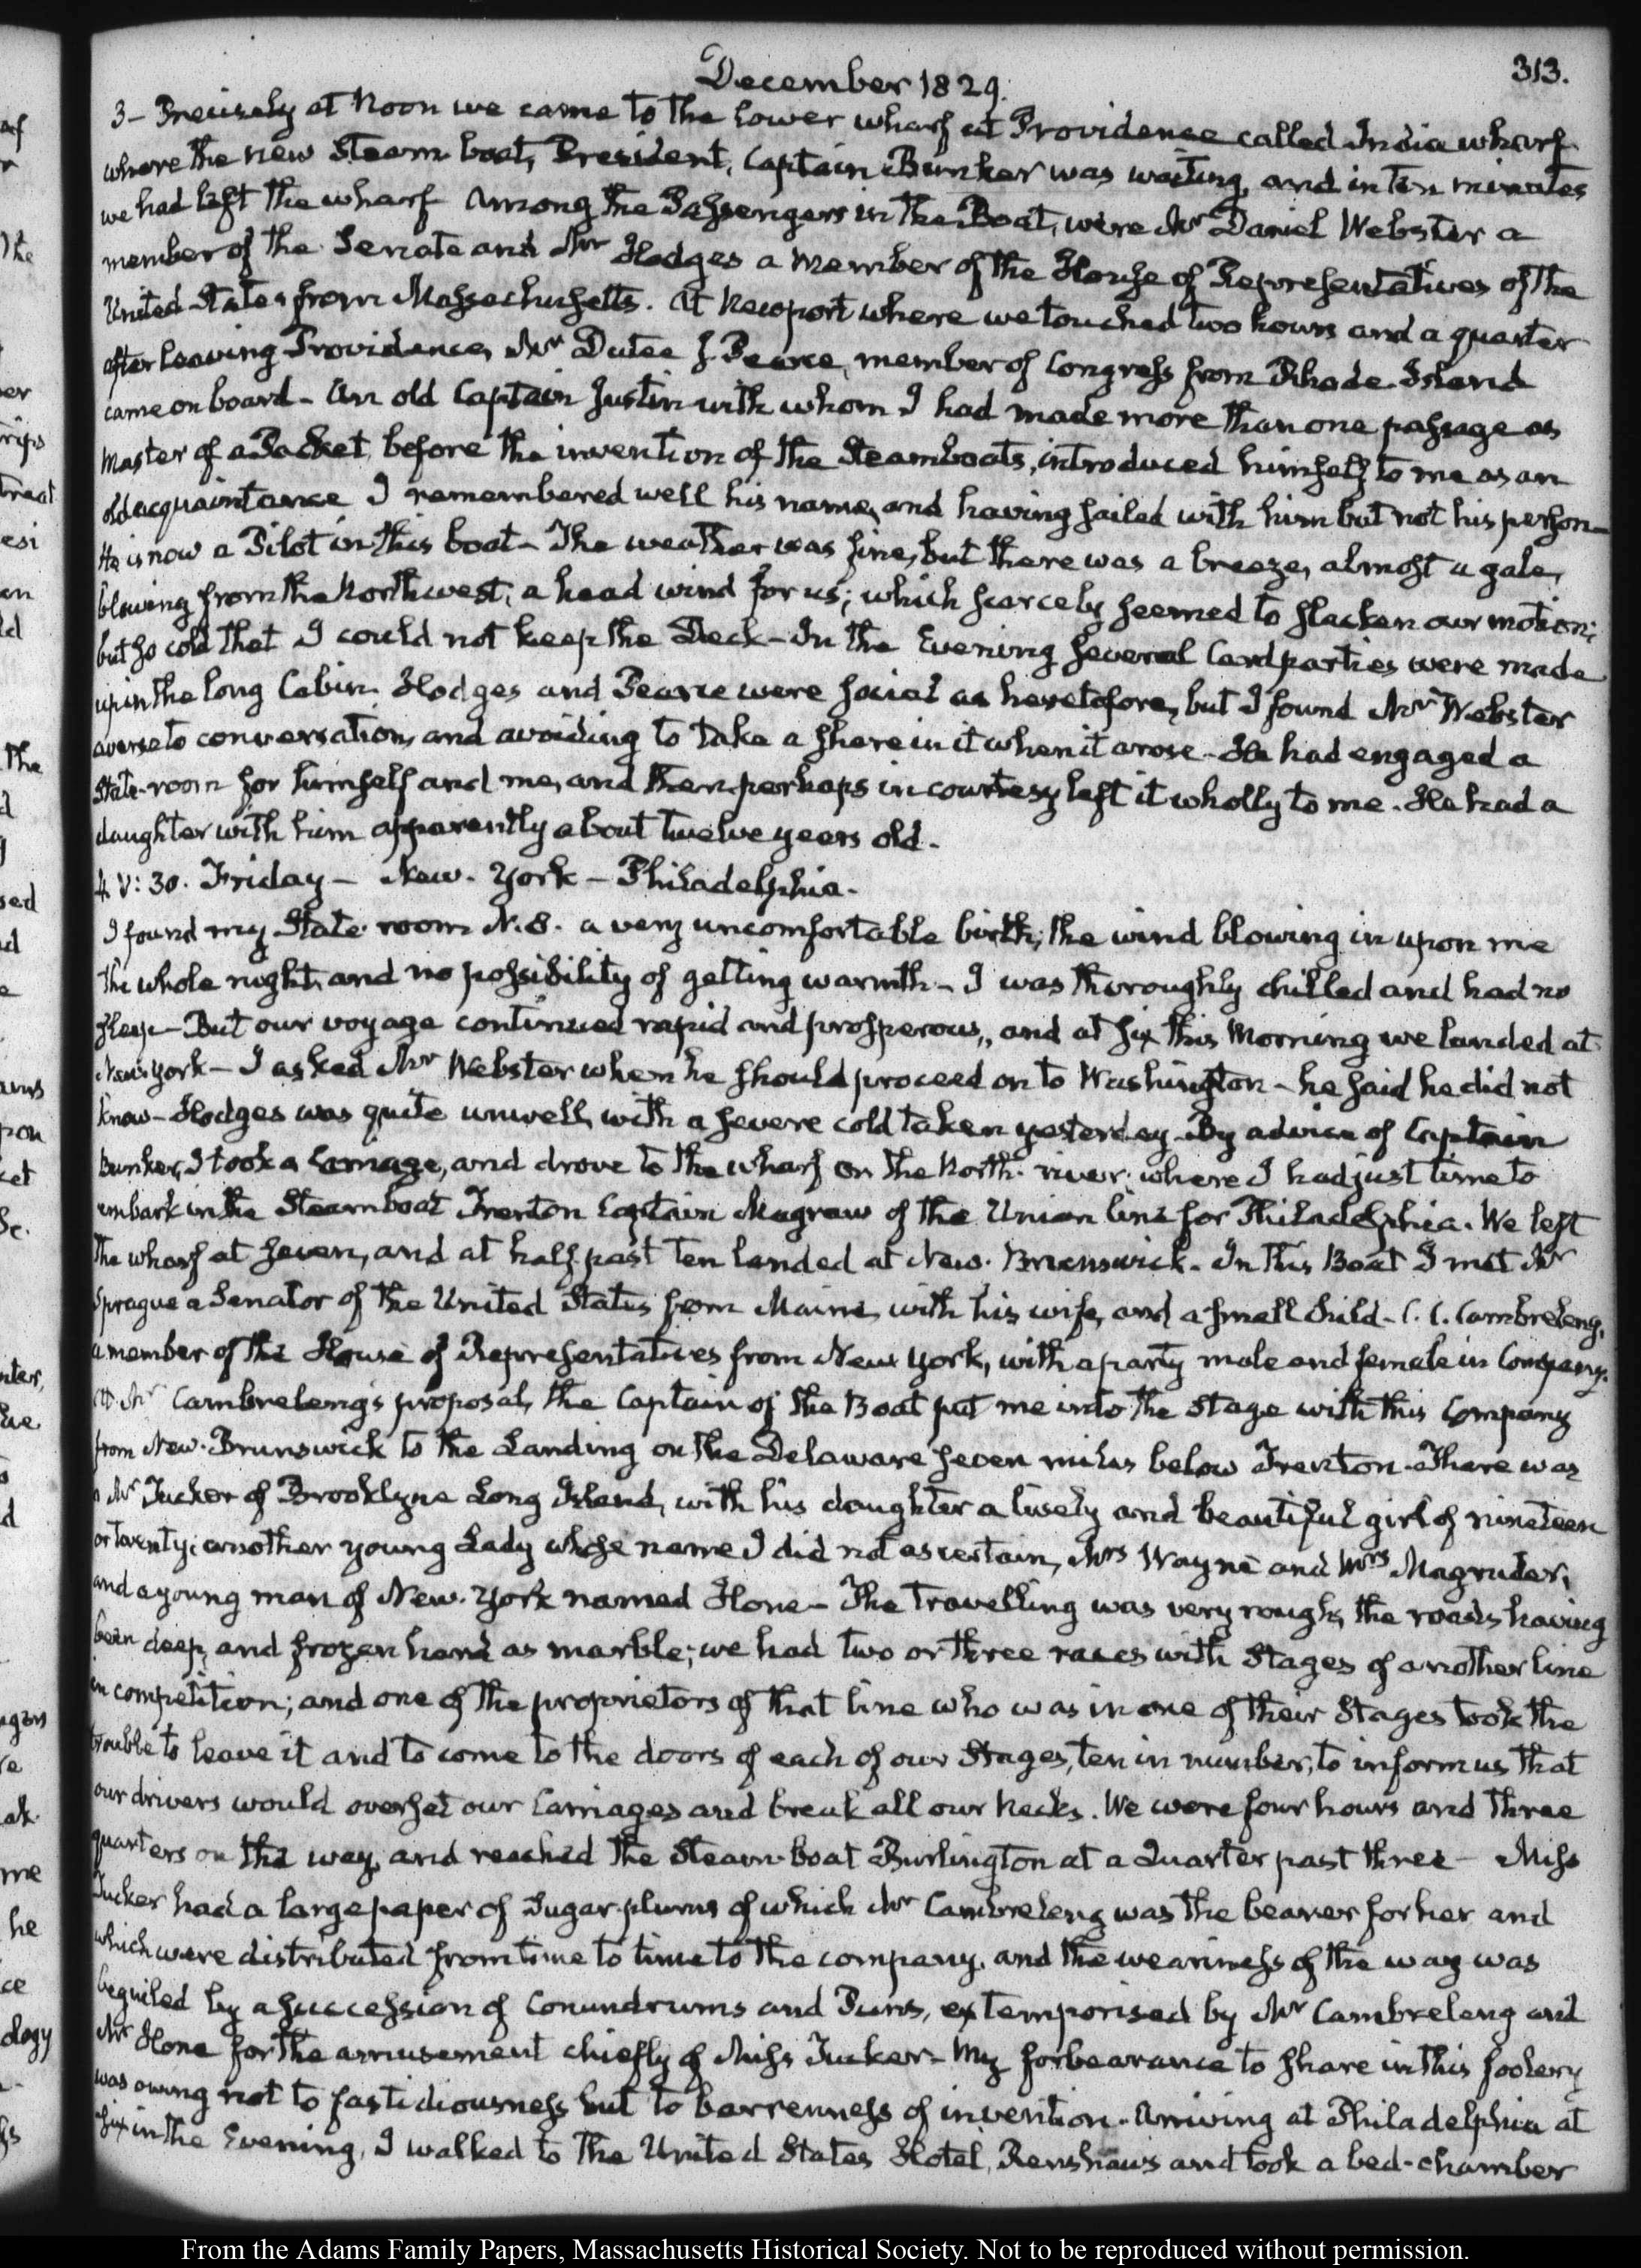 December 1829.
313.
3 — Precisely at Noon we came to the lower wharf at Providence called India wharf
where the new Steam-boat, President, Captain Bunker was waiting, and in ten minutes
we had left the wharf. Among the Passengers in the Boat, were Mr Daniel Webster a
member of the Senate and Mr Hodges a Member of the House of Representatives of the
United States from Massachusetts. At Newport where we touched two hours and a quarter
after leaving Providence, Mr Dutee J. Pearce, member of Congress from Rhode-Island
came on board — An old Captain Justin with whom I had made more than one passage as
Master of a Packet, before the invention of the Steamboats, introduced himself to me as an
old acquaintance I remembered well his name, and having sailed with him but not his person —
He is now a Pilot in this boat — The weather was fine, but there was a breeze, almost a gale,
blowing from the Northwest, a head wind for us; which scarcely seemed to slacken our motion;
but so cold that I could not keep the Deck — In the Evening several Card parties were made
up in the long Cabin. Hodges and Pearce were social as heretofore, but I found Mr Webster
averse to conversation, and avoiding to take a share in it when it arose — He had engaged a
State-room for himself and me, and then perhaps in courtesy left it wholly to me. He had a
daughter with him apparently about twelve years old —
4. V: 30. Friday — New-York — Philadelphia.
I found my State-room N. 8. a very uncomfortable birth; the wind blowing in upon me
the whole night, and no possibility of getting warmth — I was thoroughly chilled and had no
sleep — But our voyage continued rapid and prosperous, and at six this Morning we landed at
New York — I asked Mr Webster when he should proceed on to Washington — he said he did not
know — Hodges was quite unwell, with a severe cold taken yesterday. By advice of Captain
Bunker, I took a Carriage, and drove to the wharf on the North-river, where I had just time to
embark in the Steamboat Trenton Captain Magraw of the Union line for Philadelphia. We left
the wharf at seven, and at half past ten landed at New-Brunswick. In this Boat I met Mr
Sprague a Senator of the United States from Maine, with his wife, and a small child — C. C. Cambreleng,
a member of the House of Representatives from New York, with a party male and female in Company.
At Mr Cambreleng's proposal, the Captain of the Boat put me into the Stage with this Company
from New-Brunswick to the Landing on the Delaware seven miles below Trenton. There was
a Mr Tucker of Brooklyne Long Island, with his daughter a lively and beautiful girl of nineteen
or twenty; another young Lady whose name I did not ascertain, Mrs Wayne and Mrs Magruder,
and a young man of New-York named Hone — The travelling was very rough, the roads having
been deep, and frozen hard as marble; we had two or three races with Stages of another line
in competition; and one of the proprietors of that line who was in one of their Stages took the
trouble to leave it and to come to the doors of each of our Stages, ten in number, to inform us that
our drivers would overset our Carriages and break all our necks. We were four hours and three
quarters on the way, and reached the Steam-boat Burlington at a Quarter past three — Miss
Tucker had a large paper of Sugar-plums of which Mr Cambreleng was the bearer for her and
which were distributed from time to time to the company, and the weariness of the way was
beguiled by a succession of Conundrums and Puns, extemporised by Mr Cambreleng and
Mr Hone for the amusement chiefly of Miss Tucker — My forbearance to share in this foolery
was owing not to fastidiousness but to barrenness of invention. Arriving at Philadelphia at
six in the Evening, I walked to the United States Hotel, Renshaw's and took a bed-chamber
From the Adams Family Papers, Massachusetts Historical Society. Not to be reproduced without permission.